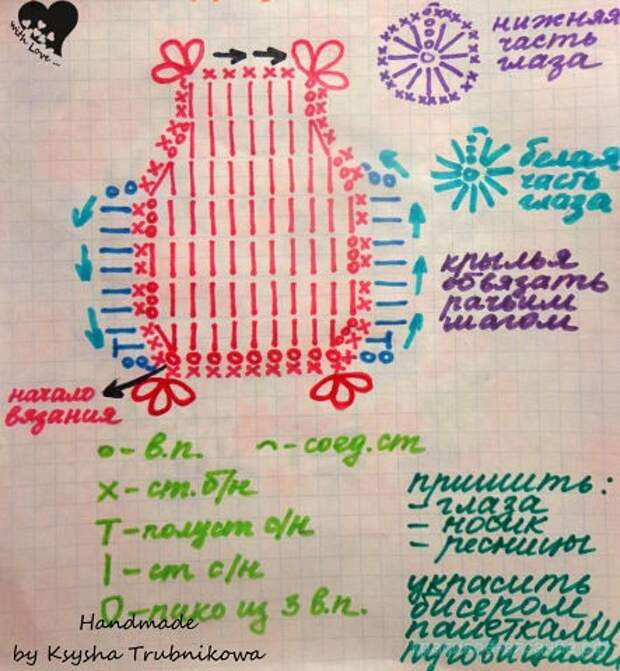 with Love ...
нижняя
часть
глаза
белая
часть
глаза
крылья
обвязать
рачьим
шагом
начало
вязания
о - в.п. ⌒ - соед. ст
х - ст. б/н
Т - полуст с/н
| - ст с/н
О - пико из 3 в.п.
пришить:
- глаза
- носик
- ресницы
украсить
бисером,
пайетками,
пуговицами
Handmade
by Ksysha Trubnikowa